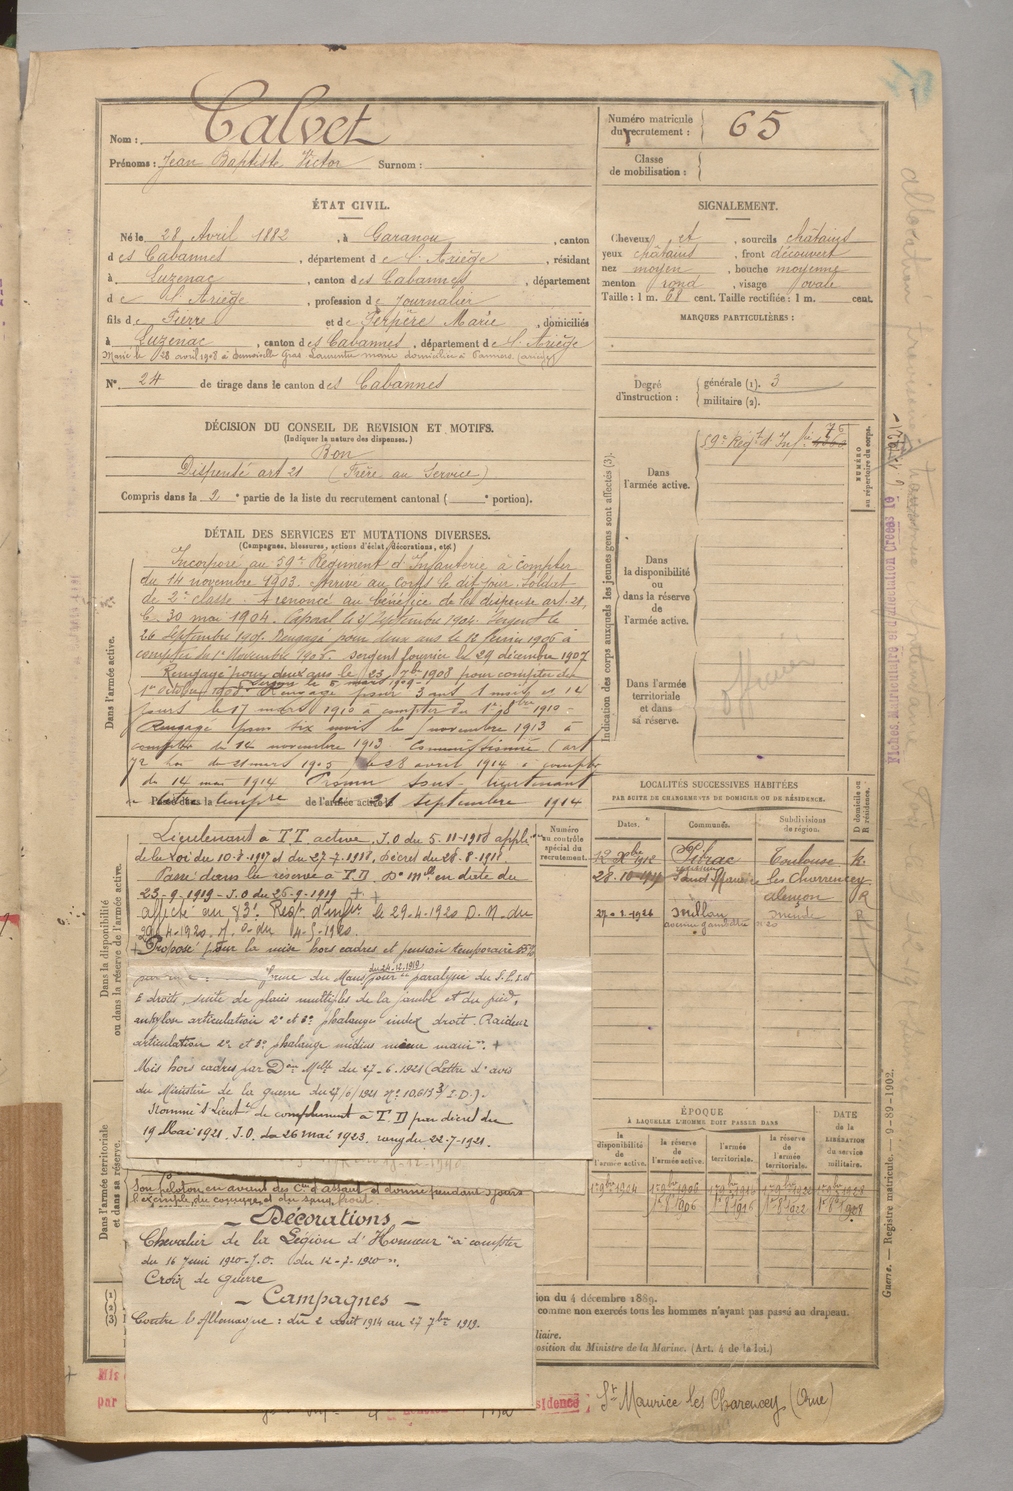 Nom : Calvet
Prénoms : Jean Baptiste Victor Surnom :
Numéro matricule du recrutement : 65
Classe de mobilisation :
ÉTAT CIVIL.
Né le 28 Avril 1882, à Garanou, canton
des Cabannes, département de l'Ariège, résidant
à Luzenac, canton des Cabannes, département
de l'Ariège, profession de Journalier
fils de Pierre et de Perpère Marie, domiciliés
à Luzenac, canton des Cabannes, département de l'Ariège
Marié le 28 avril 1908 à demoiselle Gras Laurentine domicilié à Pamiers (Ariège)
N° 24 de tirage dans le canton des Cabannes
SIGNALEMENT.
Cheveux et, sourcils châtains
yeux châtains, front découvert
nez moyen, bouche moyenne
menton rond, visage ovale
Taille : 1 m. 68 cent. Taille rectifiée : 1 m. cent.
MARQUES PARTICULIÈRES :
Degré d'instruction : générale (1). 3
militaire (2).
DÉCISION DU CONSEIL DE REVISION ET MOTIFS.
(Indiquer la nature des dispenses.)
Bon
Dispensé art 21 (Frère au Service)
Compris dans la 2e partie de la liste du recrutement cantonal ( e portion).
DÉTAIL DES SERVICES ET MUTATIONS DIVERSES.
(Campagnes, blessures, actions d'éclat, décorations, etc.)
Dans l'armée active.
Incorporé au 59e Régiment d'Infanterie à compter
du 14 novembre 1903. Arrivé au corps le dit jour. Soldat
de 2e classe. A renoncé au bénéfice de la dispense art. 21,
le 30 mai 1904. Caporal le 27 Septembre 1904. Sergent le
26 Septembre 1905. Rengagé pour deux ans le 18 Février 1906 à
compter du 1er Novembre 1906. sergent fourrier le 29 décembre 1907
Rengagé pour deux ans le 23 7bre 1908 pour compter du
1er octobre 1908. Rengagé pour 3 ans 1 mois et 14
jours le 17 mars 1910 à compter du 1er 8bre 1910
Rengagé pour six mois le novembre 1913 à
compter du 14 novembre 1913. Commissionné (art
72 Loi du 21 mars 1905 le 28 avril 1914 à compter
du 14 mai 1914 Promu sous-lieutenant
le 21 septembre 1914
Dans la disponibilité ou dans la réserve de l'armée active.
Lieutenant à T.T. active. J.O du 5.11.1918 appli-
de la loi du 10.8.1917 et du 27.7.1918, décret du 28.8.1918.
Passé dans la réserve à T.D. De mle en date du
23-9-1919 - J.O du 26-9-1919 +
affecté au 83e Regt d'infie le 29-4-1920 D.M. du
Proposé pour la mise hors cadres et pension temporaire
du 24.12.1919
du Mans pour paralysie du S.P.E. et
E droite, suite de plaies multiples de la jambe et du pied,
ankylose articulation 2e et 3e phalanges index droit. Raideur
articulation 2e et 3e phalange médius même main. +
Mis hors cadres par Don Melle du 27-6-1921 (Lettre d'avis
du Ministère de la guerre du 27/6/1921
Nommé S/Lieut de complément à T.D par décret du
19 Mai 1921. J.O. du 26 mai 1923. rang du 22-7-1921.
Dans l'armée territoriale et dans sa réserve.
Son peloton en avant des Cies d'assaut, et donné pendant jours
l'exemple du courage et du sang froid.
- Décorations -
Chevalier de la Légion d'Honneur "à compter
du 16 Juin 1920 - J.O. (du 12-7-1920".
Croix de guerre
- Campagnes -
Contre l'Allemagne : du 2 août 1914 au 27 7bre 1919.
Numéro au contrôle spécial du recrutement.
Indication des corps auxquels les jeunes gens sont affectés (3).
NUMÉRO au répertoire du corps.
Dans l'armée active.
59e Régt d'Infie
Dans la disponibilité ou dans la réserve de l'armée active.
Dans l'armée territoriale et dans sa réserve.
officier
LOCALITÉS SUCCESSIVES HABITÉES
PAR SUITE DE CHANGEMENTS DE DOMICILE OU DE RÉSIDENCE.
Dates. Communes. Subdivisions de région. D domicile ou R résidence.
12 Xbre 1912 Pibrac Toulouse R
28-10-1919 Saint Maurice les Charencey
alençon R
27-1-1926 Millau mende R
ÉPOQUE
À LAQUELLE L'HOMME DOIT PASSER DANS
DATE de la LIBÉRATION du service militaire.
la disponibilité de l'armée active. la réserve de l'armée active. l'armée territoriale. la réserve de l'armée territoriale.
1er 8bre 1906 1er 8 1922
ion du 4 décembre 1889.
comme non exercés tous les hommes n'ayant pas passé au drapeau.
liaire.
osition du Ministre de la Marine. (Art. 4 de la loi.)
Guerre. — Registre matricule. — 9-89-1902.
Mis
par
sidence : St Maurice les Charencey (Orne)